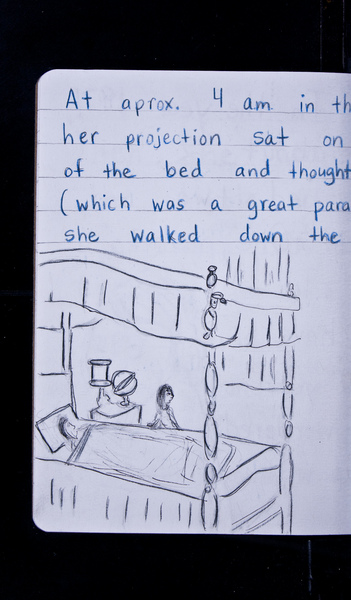 At aprox. 4 am in th
her projection sat on
of the bed and thought
(which was a great para
she walked down the